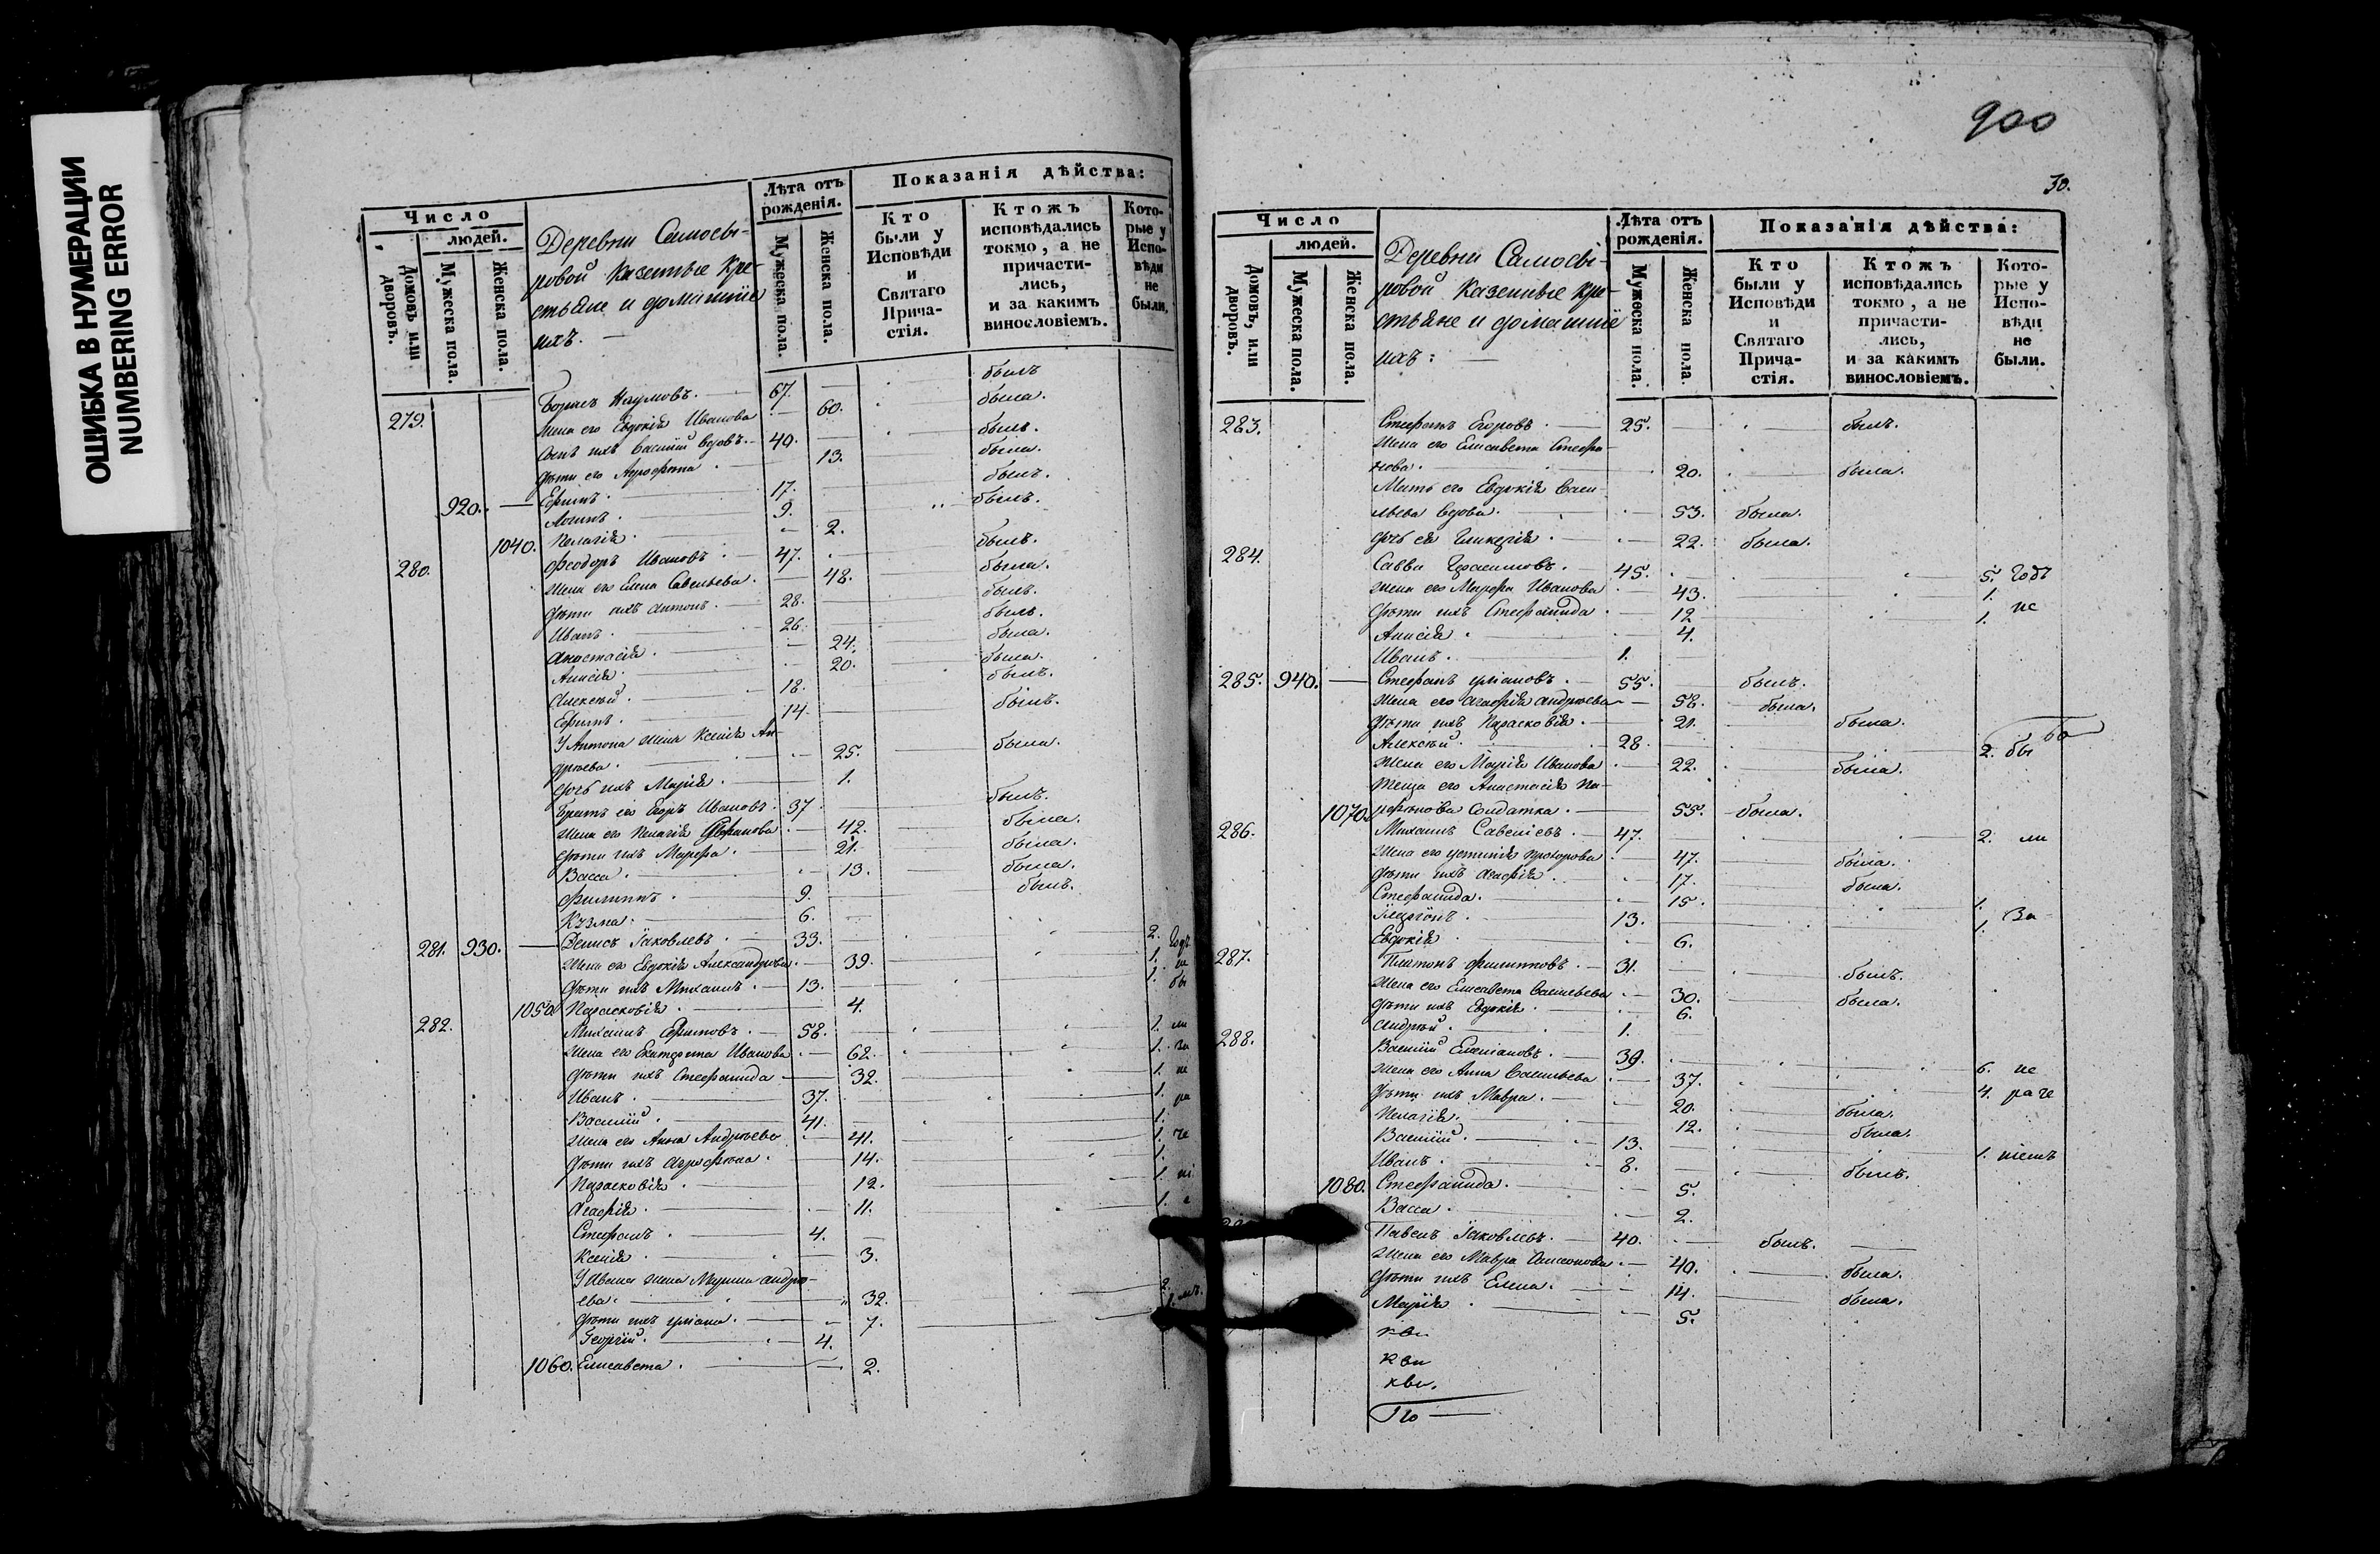 ОШИБКА В НУМЕРАЦИИ
NUMBERING ERROR
Число
людей.
Домовъ или дворовъ.
Мужеска пола.
Женска пола.
Деревни
ровой Казенные Кре-
стьяне и домашніе
ихъ. —
Лѣта отъ рожденія.
Мужеска пола.
Женска пола.
Показанія дѣйства:
Кто были у Исповѣди и Святаго Прича-стія.
Ктожъ исповѣдались токмо, а не причасти-лись, и за какимъ винословіемъ.
Кото-рые у Испо-вѣди не были.
279. Борисъ Наумовъ. 67. былъ
жена его Евдокія Иванова 60. была.
сынъ ихъ Василій вдовъ. 40. былъ.
дѣти его Агрофена 13. была.
920. Ефимъ. 17. былъ.
Логинъ. 9. былъ.
1040. Пелагія. 2.
280. Феодоръ Ивановъ. 47. былъ.
жена его Елена Савельева. 48. была.
дѣти ихъ Антонъ. 28. былъ.
Иванъ. 26. былъ.
Анастасія. 24. была.
Анисія. 20. была.
Алексѣй. 18. былъ.
Ефимъ. 14. былъ.
У Антона жена Ксенія Ан-
дреева. 25. была.
дочь ихъ Марія. 1.
Братъ его Егоръ Ивановъ. 37. былъ.
жена его Пелагія 42. была.
дѣти ихъ Марфа. 21. была.
Васса. 13. была.
Филиппъ. 9. былъ.
Кузма. 6.
281. 930. Денисъ Іаковлевъ. 33. 2. годъ
жена его Евдокія Александрова. 39. 1. не
дѣти ихъ Михаилъ. 13. 1. бы
1050 Парасковія. 4.
282. Михаилъ Ефимовъ. 58. 1. ли
жена его Екатерина Иванова 62. 1. За
дѣти ихъ Стефанида 32. 1. не
Иванъ. 37. 1. ра
Василій. 41. 1.
жена его Анна Андреева 41. 1. че
дѣти ихъ Агрофена. 14. 1.
Парасковія. 12. 1. ні
Агафія. 11. 1.
Стефанъ. 4.
Ксенія. 3.
У Ивана жена Марина андре-
ева. 32. 2.
дѣти ихъ уліана. 7. 1. мъ.
Георгій. 4.
1060. Елисавета. 2.
900
30.
Число
людей.
Домовъ, или дворовъ.
Мужеска пола.
Женска пола.
Деревни
ровой Казенные Кре-
стьяне и домашніе
ихъ: —
Лѣта отъ рожденія.
Мужеска пола.
Женска пола.
Показанія дѣйства:
Кто были у Исповѣди и Святаго Прича-стія.
Ктожъ исповѣдались токмо, а не причасти-лись, и за какимъ винословіемъ.
Кото-рые у Испо-вѣди не были.
283. Стефанъ Егоровъ. 25. былъ.
жена его Елисавета Стефа-
нова. 20. была.
Мать его Евдокія Васи-
льева вдова. 53. была.
дочь ея Гликерія. 22. была.
284. Савва Герасимовъ. 45. 5. Годъ
жена его Марфа Иванова 43. 1.
дѣти ихъ Стефанида. 12 1. не
Анисія. 4.
Иванъ. 1.
285. 940. Стефанъ уліановъ. 55. былъ.
жена его агафія андреева 58. была.
дѣти ихъ Парасковія. 21. была.
Алексѣй. 28. 2. бы
жена его Марія Иванова 22. была.
теща его Анастасія Па-
1070. рфенова Солдатка. 55. была.
286. Михаилъ Савеліевъ. 47. 2. ли
жена его устинія прохорова 47. была.
дѣти ихъ Агафія. 17. была.
Стефанида. 15. 1.
13. 1. За
Евдокія 6.
287. Платонъ филипповъ. 31. былъ.
жена его Елисавета Васильева 30. была.
дѣти ихъ Евдокія. 6.
андрей. 1.
288. Василій Емеліановъ. 39. 6. не
жена его Анна Васильева 37. 4. раче
дѣти ихъ Мавра. 20. была.
Пелагія. 12. была.
Василій. 13. 1. ніемъ
Иванъ. 8. былъ.
1080. Стефанида. 5.
Васса. 2.
Павелъ Іаковлевъ. 40. былъ.
жена его Мавра Самсонова. 40. была.
дѣти ихъ Елена. 14. была.
Марія. 5.